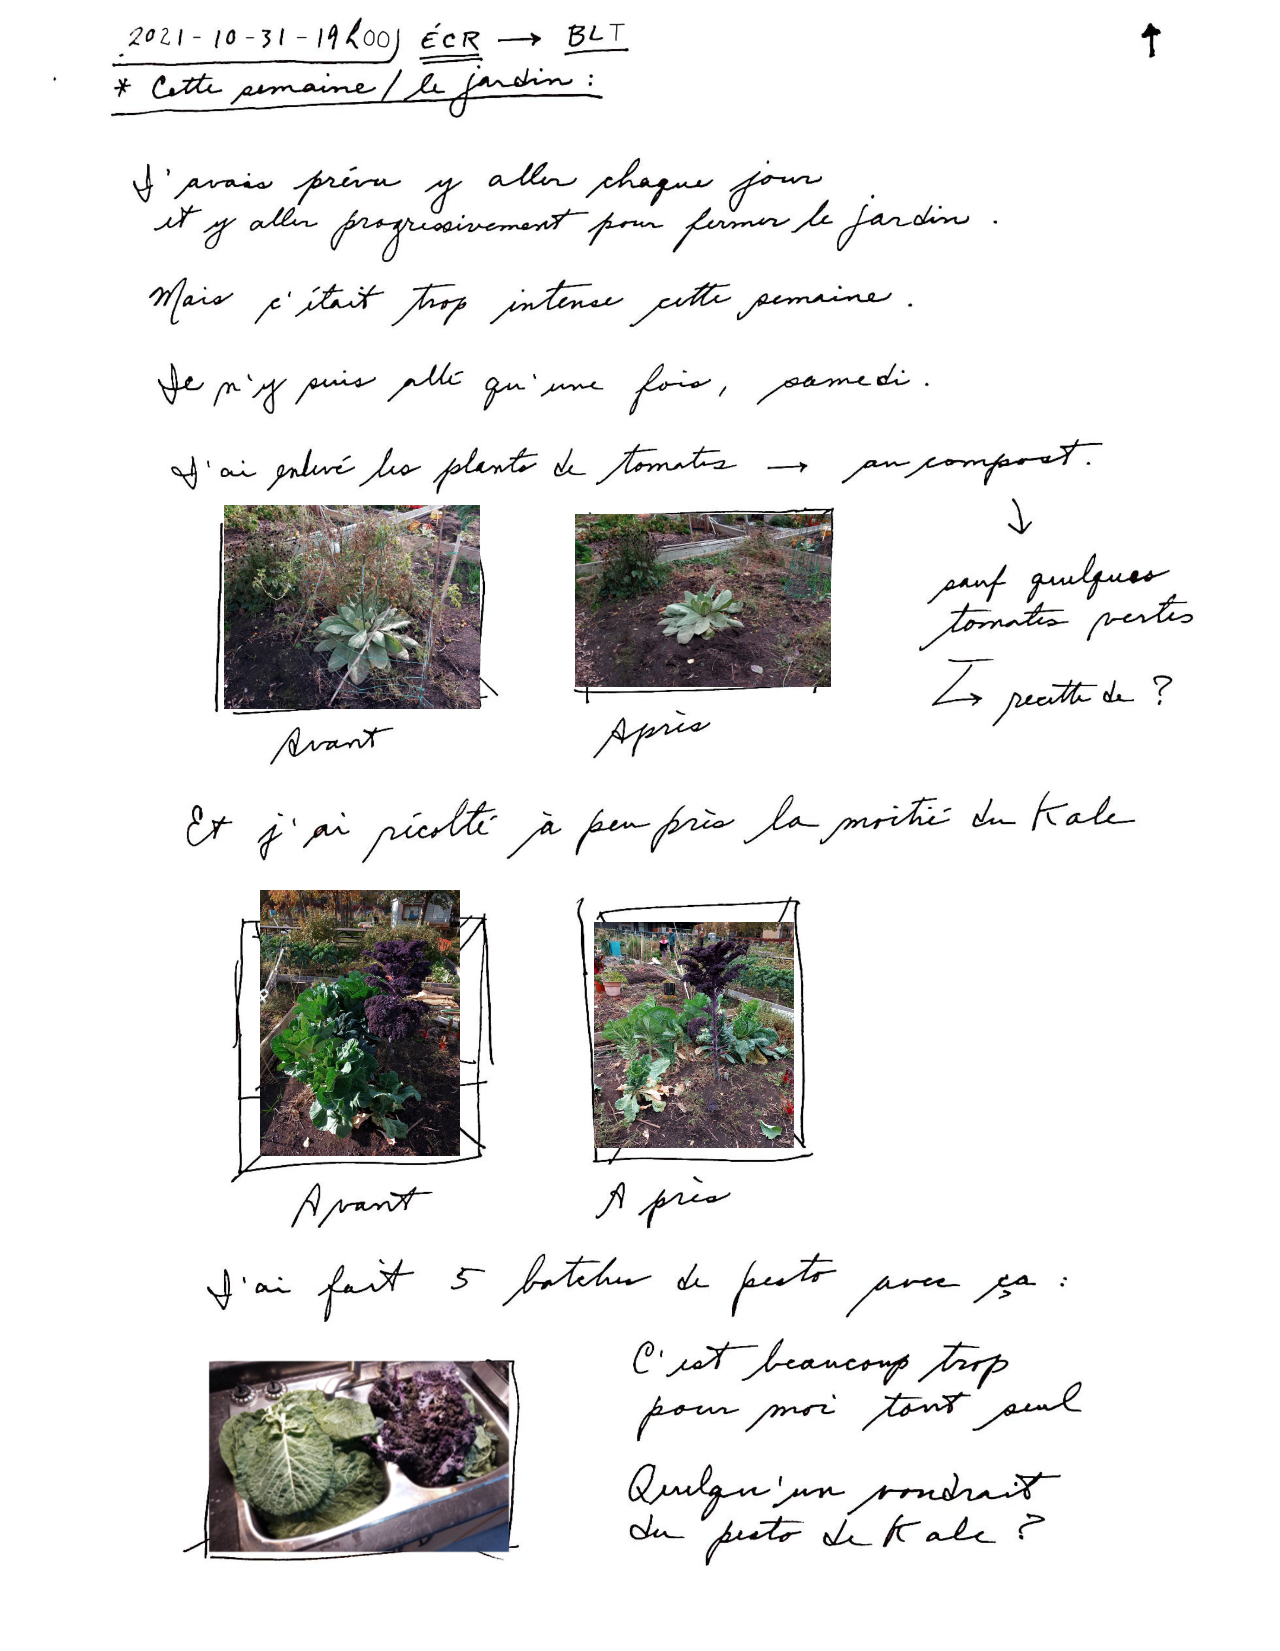 2021-10-31-19h00) ÉCR → BLT ↑
* Cette semaine / le jardin :
J'avais prévu y aller chaque jour
et y aller progressivement pour fermer le jardin .
Mais c'était trop intense cette semaine .
Je n'y suis allé qu'une fois, samedi .
J'ai enlevé les plants de tomates → au compost .
↓
sauf quelques
tomates vertes
↳ recette de ?
Avant
Après
Et j'ai récolté à peu près la moitié du Kale
Avant
Après
J'ai fait 5 batches de pesto avec ça :
C'est beaucoup trop
pour moi tout seul
Quelqu'un voudrait
du pesto de Kale ?